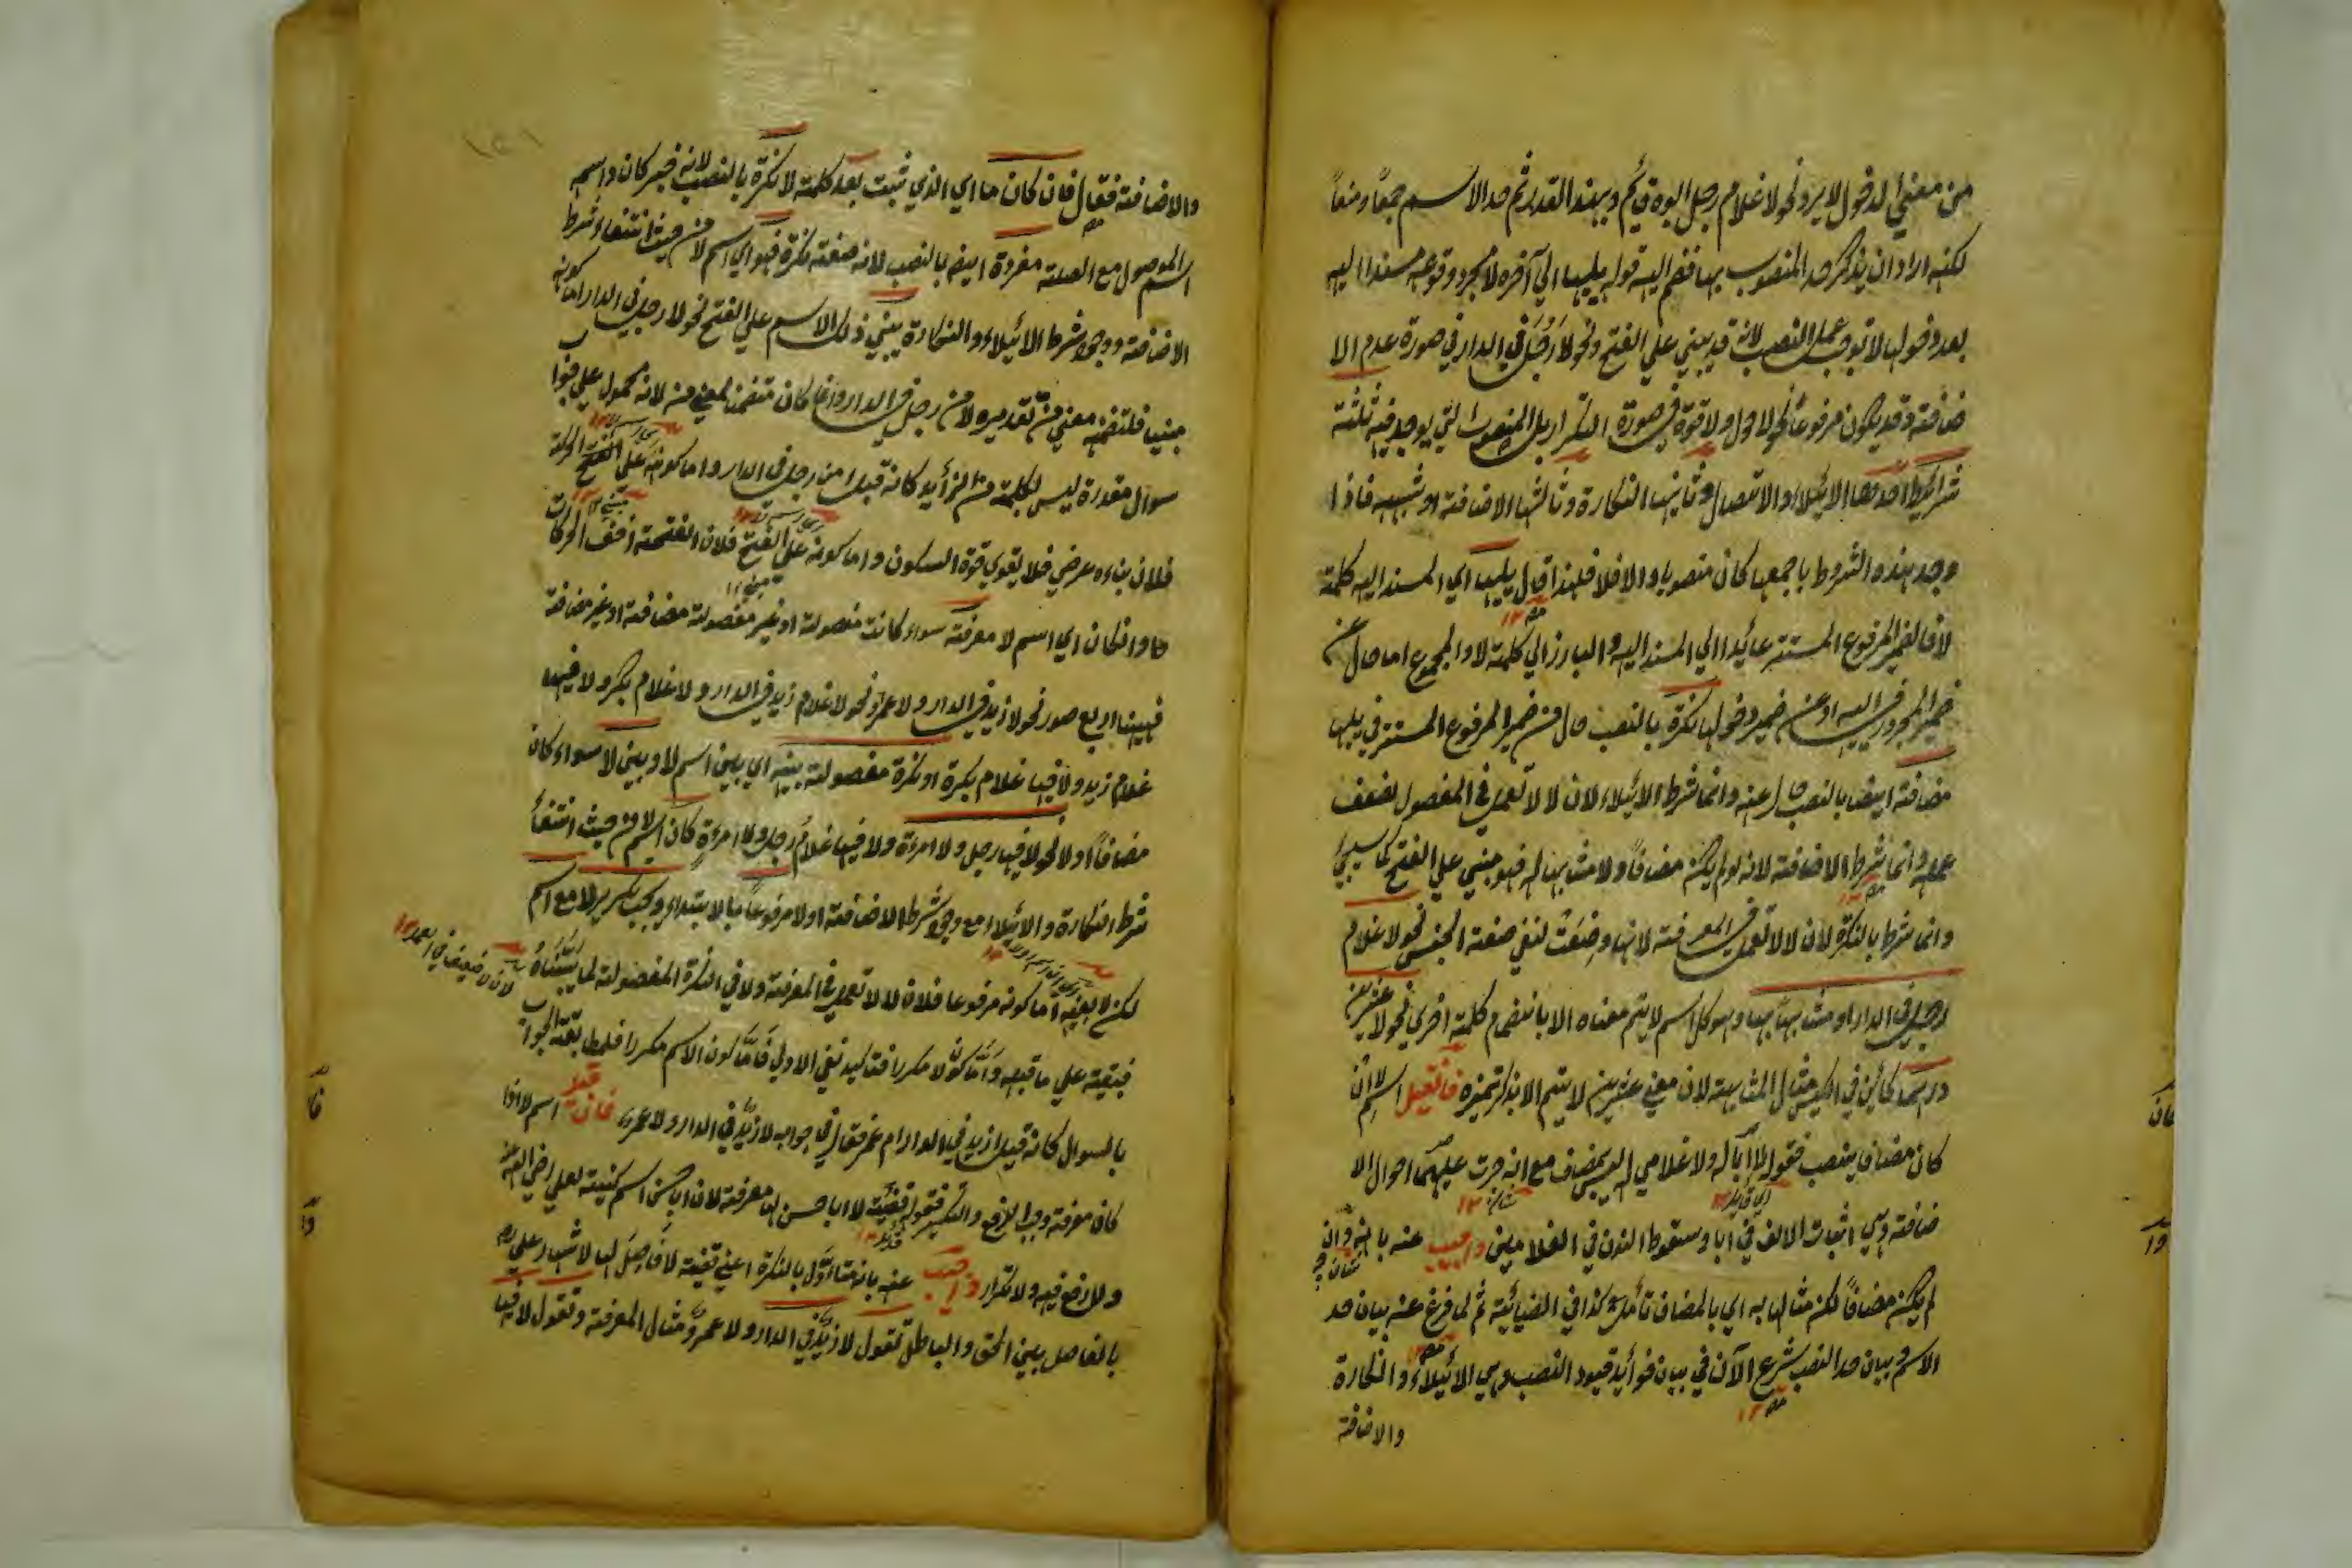 من معنى الدخول لا يرد نحو لا غلام رجل ابوه قائم وبهذا القدر تم حد الاسم جمعاً ومنعاً
لكنه اراد ان يذكر حد المنصوب بها فضم اليه قوله يليها الى آخره لا مجرد وقوعه مسندا اليه
بعد دخولها لا توجب عمل النصب لانه قد يبنى على الفتح نحو لا رَجُلَ في الدار في صورة عدم الا
ضافته وقد يكون مرفوعاً نحو لا حول ولا قوة في صورة التكرار بل المنصوب التي يوجد فيه ثلثة
شرائط احدها الايلاء والاتصال وثانيها النكارة وثالثها الاضافة او شبهه فاذا
وجد هذه الشروط باجمعها كان منصوبا والا فلا فلهذا قال يليها اي المسند اليه كلمة
لا فالضمير المرفوع المستتر عائد الى المسند اليه والبارز الى كلمة لا والمجموع اما حال عن
ضمير المجرور في اليه او عن ضمير دخولها نكرة بالنصب حال من ضمير المرفوع المستتر في يليها
مضافة ايضا بالنصب حال عنه وانما شرط الايلاء لان لا لا تعمل في المفصول لضعف
عمله وانما شرط الاضافة لانه لو لم يكن مضافاً ولا مشابها له فهو مبني على الفتح كما سيجئ
وانما شرط بالنكرة لان لا لا تعمل في المعرفة لانها وضعت لنفي صفة الجنس نحو لا غلام
رجل في الدار او مشابهاً بها وهو كل اسم لا يتم معناه الا بانضمام كلمة اخرى نحو لا عشرين
درهما كائن في الكيس مثال المشابهة لان معنى عشرين لا يتم الا بذكر تميزه فان قيل اسم لا ان
كان مضافا ينصب فقولك لا ابا له ولا غلامي له ليس بمضاف مع انه جرت عليهما احوال الا
ضافة وهي اثبات الالف في ابا وسقوط النون في الغلامين واجيب عنه بانه وان
لم يكن مضافاً لكن مشابها به اي بالمضاف تأمل كذا في الضيائية ثم لما فرغ عنه بيان حد
الاسم وبيان حد النصب شرع الآن في بيان فوائد قيود النصب وهي الايلاء والنكارة
والاضافة
والاضافة فقال فان كان ما اي الذي ثبت بعد كلمة لا نكرة بالنصب لانه خبر كان واسمه
اسم الموصول مع الصلة مفردة ايضا بالنصب لانه صفة نكرة فهو اي اسم لا من حيث انتفاء شرط
الاضافة ووجود شرط الايلاء والنكارة يبنى ذلك الاسم على الفتح نحو لا رجل في الدار اما كونه
مبنيا فلتضمنه معنى من تقديره لا من رجل في الدار وانما كان متضمنا لمعنى من لانه محمول على جواب
سوال مقدرة ليس لكلمة من الزائد كانه قيل هل من رجل في الدار واما كونه على الحركة
فلان بناءه عرضي فلا يقوى قوة السكون واما كونه على الفتح فلان الفتحة اخف الحركات
وان كان اي اسم لا معرفة سواء كانت مفصولة او غير مفصولة مضافة او غير مضافة
فههنا اربع صور نحو لا زيد في الدار ولا عمرو ونحو لا غلام زيد في الدار ولا غلام بكر ولا فيها
غلام زيد ولا فيها غلام بكر او نكرة مفصولة بينه اي بين اسم لا وبين لا سواء كان
مضافاً او لا نحو لا فيها رجل ولا امرءة ولا فيها غلام رجل ولا امرءة كان اسم لا من حيث انتفأ
شرط النكارة والايلاء مع وجود شرط الاضافة او لا مرفوعاً بالابتداء ويجب تكرير لا مع اسم
لكن لا بعينه اما كونه مرفوعا فلان لا لا تعمل في المعرفة ولا في النكرة المفصولة لما بيّناه
فبقيت على ما قبله واما كون لا مكررا فتاكيد نفي الاولى فاما كون الاسم مكررا فلمطابقة الجواب
بالسوال كانه قيل ازيد في الدار ام عمر فقال في جوابه لا زيد في الدار ولا عمرو فان قيل اسم لا اذا
كان معرفة وجب الرفع والتكرير فقوله قضيّة لا ابا حسن لها معرفة لان ابا حسن اسم كنيته لعلي رضي الله عنه
ولا رفع فيه ولا تكرار واجيب عنه بانه متاوّل بالنكرة اعني قضية لا فاصل لها لاشتهار علي رض
بالفاصل بين الحق والباطل تقول لا زيد في الدار ولا عمرو مثال المعرفة وتقول لا فيها